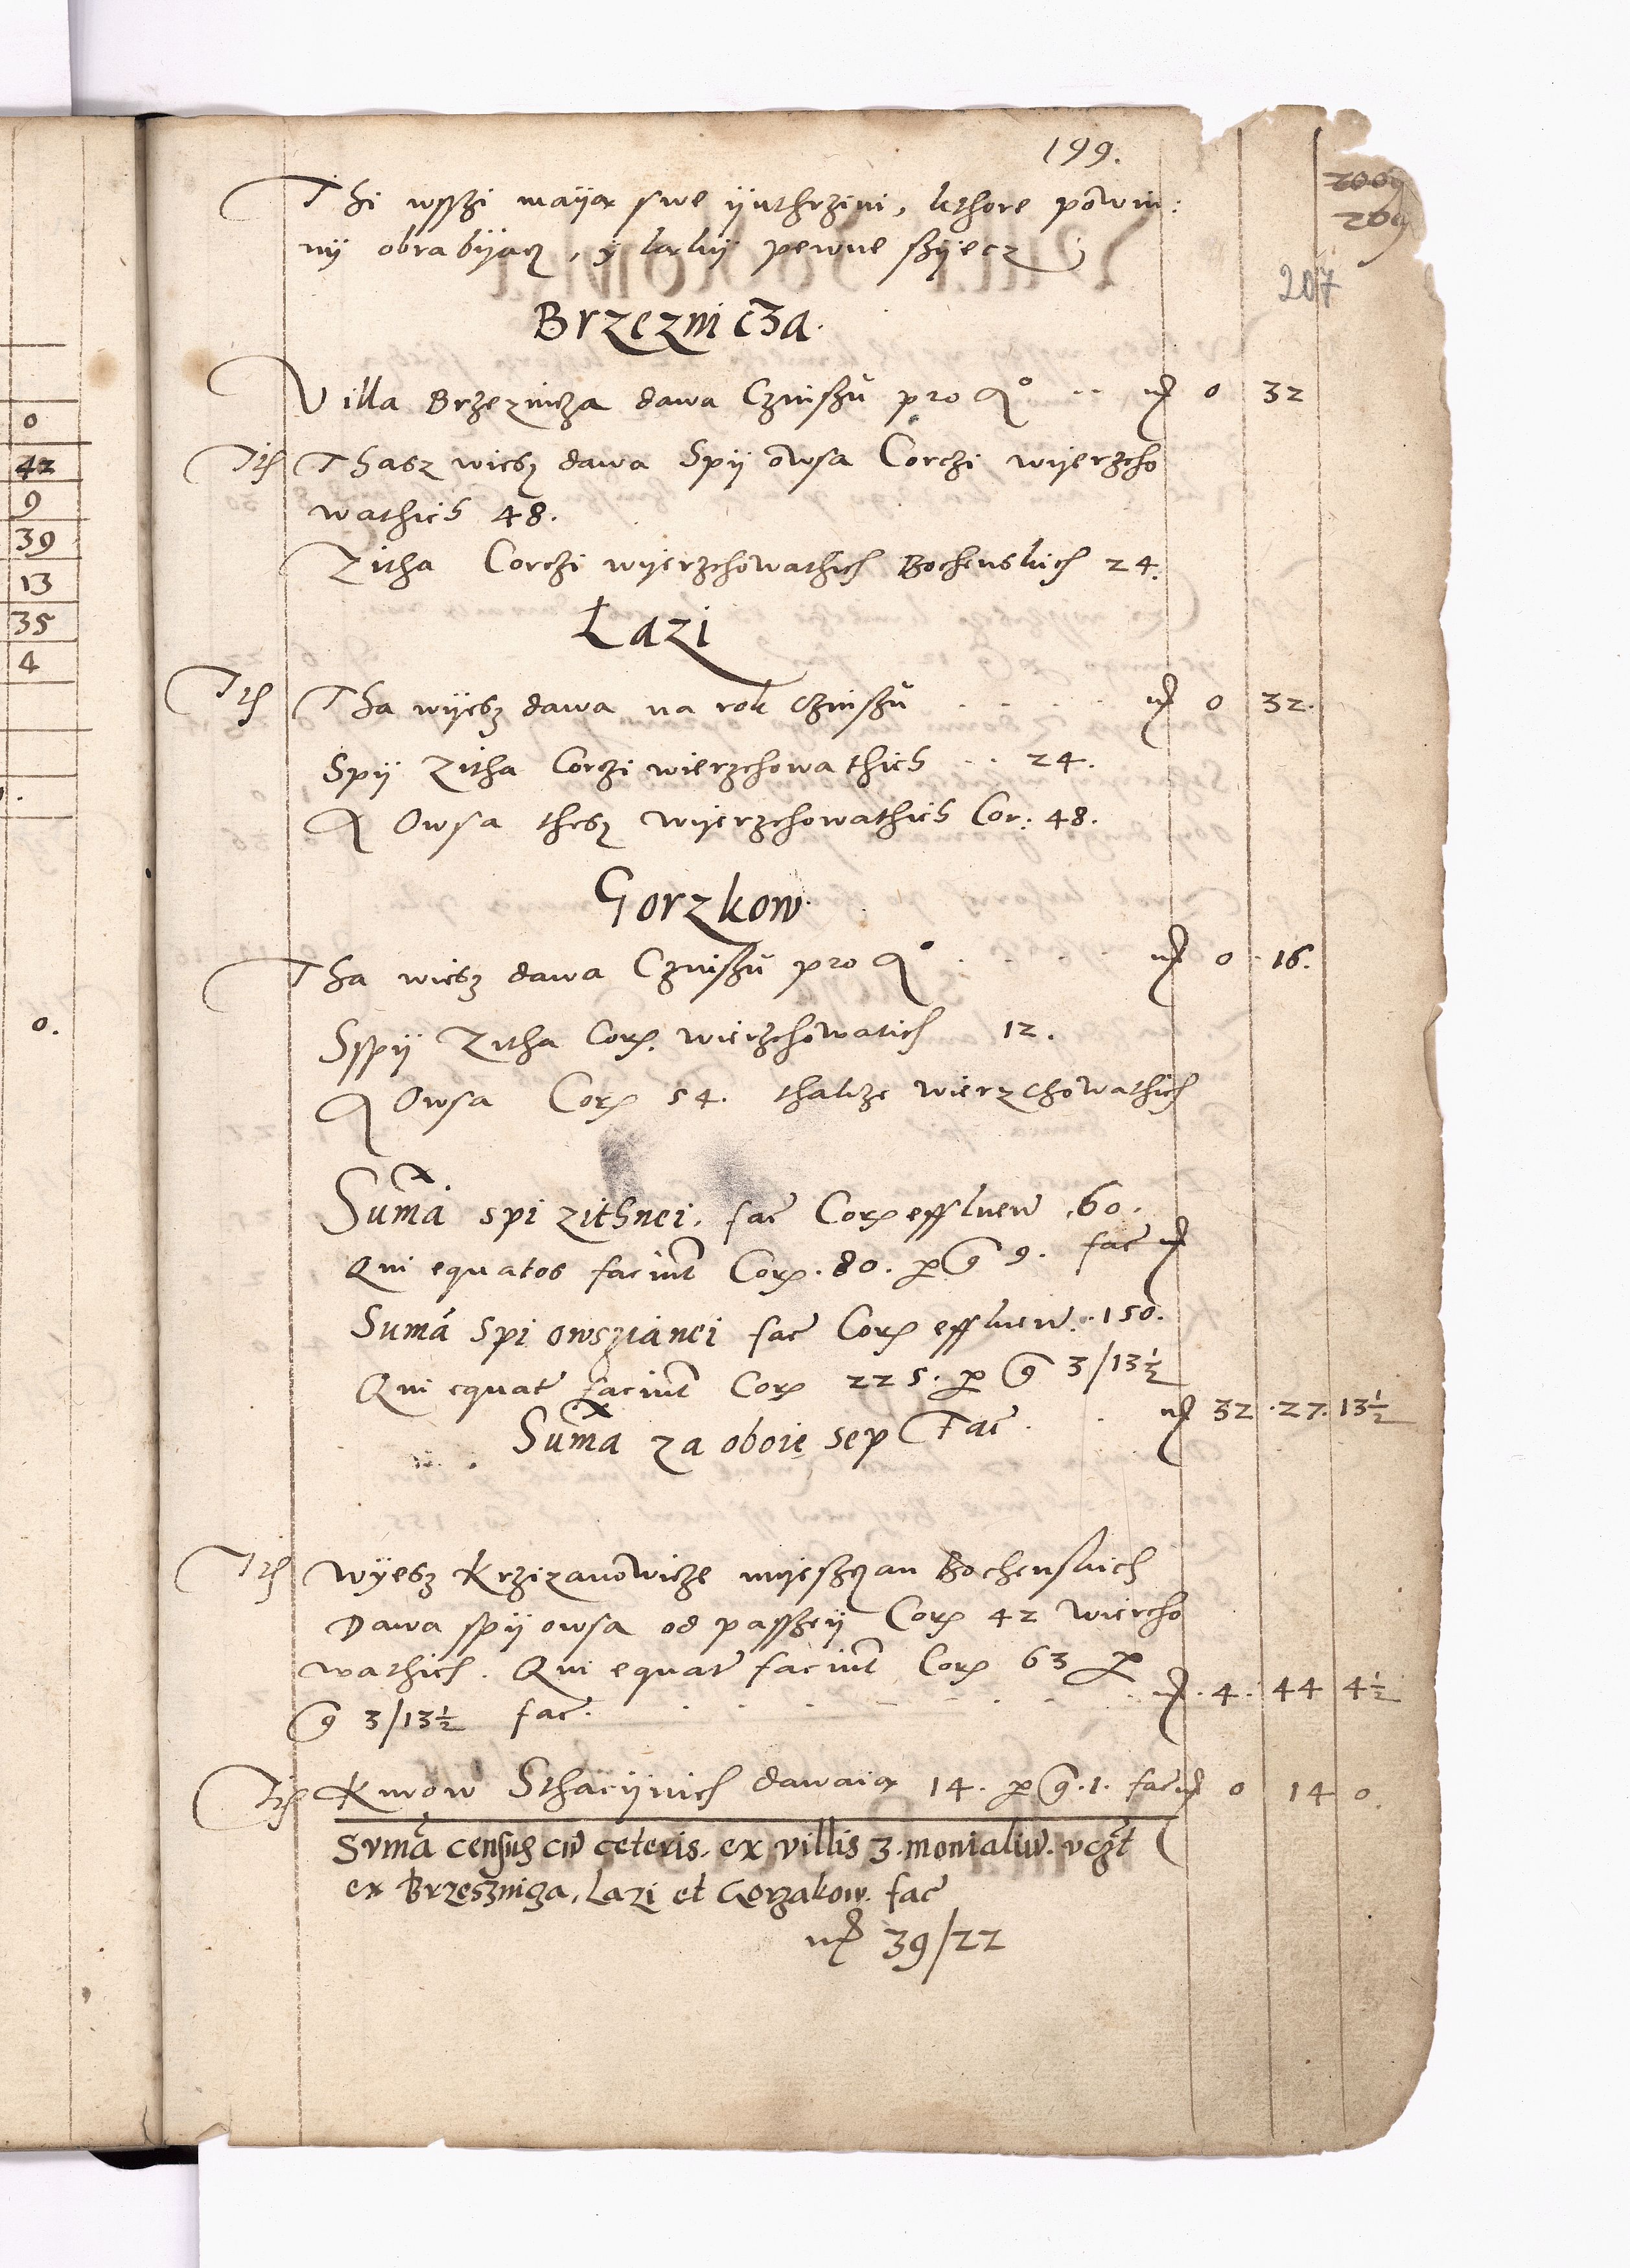 199.
200
209
207
Thi wsszi mayą swe yuthrzini, kthore powin:
ny obrabyacz, y lanky pewne szyecz
Brzeznicza.
Villa Brzeznicza dawa Czinszu pro 0 32
Thasz wiesz dawa Spij owsa Corczi wyerzcho
wathich 48.
Zitha Corczi wyerzchowathich Bochenskich 24.
Łazi
Tha wyesz dawa na rok Czinszu 0 32.
Spij Zitha Corczi wierzchowathich 24.
Owsa thesz wyerzchowathich Cor: 48.
Gorzkow.
Tha wiesz dawa Czinszu pro 0 16.
Sspij Zitha Cor. wierzchowatich 12.
Owsa Cor 54. thakze wierzchowathich
Suma spi zithnei. fac Cor effluen 60.
Qui equatos faciunt Cor. 80. per g 9. fac
Suma Spi owszianei fac Cor effluen 150.
Qui equat faciunt Cor 225. per g 3/13½
Suma za oboie sep Fac 32 27. 13½
Wyesz Krzizanowicze myesczan Bochenskich
Dawa spij owsa od passzey Cor 42 wiercho
wathich. Qui equat faciunt Cor 63 per
g 3/13½ fac. 4. 44 4½
Krow Sthacyinich dawaią 14. per g. 1. fac 0 14 0.
Suma census cum ceteris. ex villis 3. monialium. vczt
ex Brzesznicza, Lazi et Gorzakow. fac
39/22
0
42
9
39
13
35
4
0.